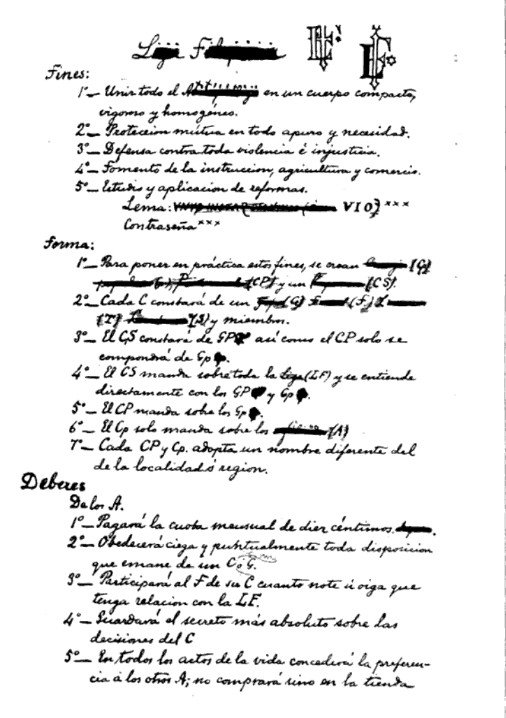 Liga Filipina LF LF
Fines:
1º— Unir todo el en un cuerpo compacto,
vigoroso y homogéneo.
2º— Proteccion mútua en todo apuro y necesidad.
3º— Defensa contra toda violencia é injusticia.
4º— Fomento de la instruccion, agricultura y comercio.
5º— Estudio y aplicacion de reformas.
Lema: VIO} ×××
Contraseña ×××
Forma:
1º— Para poner en práctica estos fines, se crean (G)
(CP) y un (CS).
2º— Cada C constará de un (G) (F)
(T) (S) y miembros.
3º— El CS constará de GP así como el CP solo se
compondrá de Gp.
4º— El CS manda sobre toda la Liga (LF) y se entiende
directamente con los GP y Gp.
5º— El CP manda sobre los Gp.
6º— El Cp solo manda sobre los (A)
7º— Cada CP y Cp. adopta un nombre diferente del
de la localidad ó region.
Deberes
De los A.
1º— Pagará la cuota mensual de diez céntimos.
2º— Obedecerá ciega y puntualmente toda disposicion
que emane de un C ó G.
3º— Participará al F de su C cuanto note ú oiga que
tenga relacion con la LF.
4º— Guardará el secreto más absoluto sobre las
decisiones del C
5º— En todos los actos de la vida concederá la preferen-
cia á los otros A; no comprará sino en la tienda